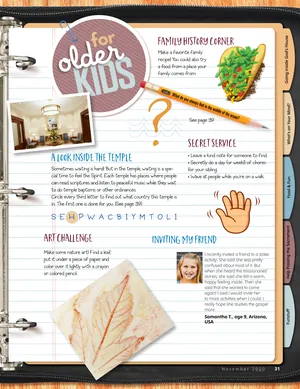 for
older
KIDS
FAMILY HISTORY CORNER
Make a favorite family
recipe! You could also try
a food from a place your
family comes from.
See page 39!
A LOOK INSIDE THE TEMPLE
Sometimes waiting is hard! But in the temple, waiting is a spe-
cial time to feel the Spirit. Each temple has places where people
can read scriptures and listen to peaceful music while they wait
to do temple baptisms or other ordinances.
Circle every third letter to find out what country this temple is
in. The first one is done for you. (See page 39!)
SEHPWACBIYMTOLI
SECRET SERVICE
• Leave a kind note for someone to find.
• Secretly do a day (or week!) of chores
for your sibling.
• Wave at people while you're on a walk.
ART CHALLENGE
Make some nature art! Find a leaf,
put it under a piece of paper and
color over it lightly with a crayon
or colored pencil.
INVITING MY FRIEND
I recently invited a friend to a stake
activity. She said she was pretty
confused about most of it. But
when she heard the missionaries'
stories, she said she felt a warm,
happy feeling inside. Then she
said that she wanted to come
again! I said I would invite her
to more activities when I could. I
really hope she studies the gospel
more.
Samantha T., age 9, Arizona,
USA
Going Inside God's House
What's on Your Mind?
Food & Fun
Funstuff
November 2020 31